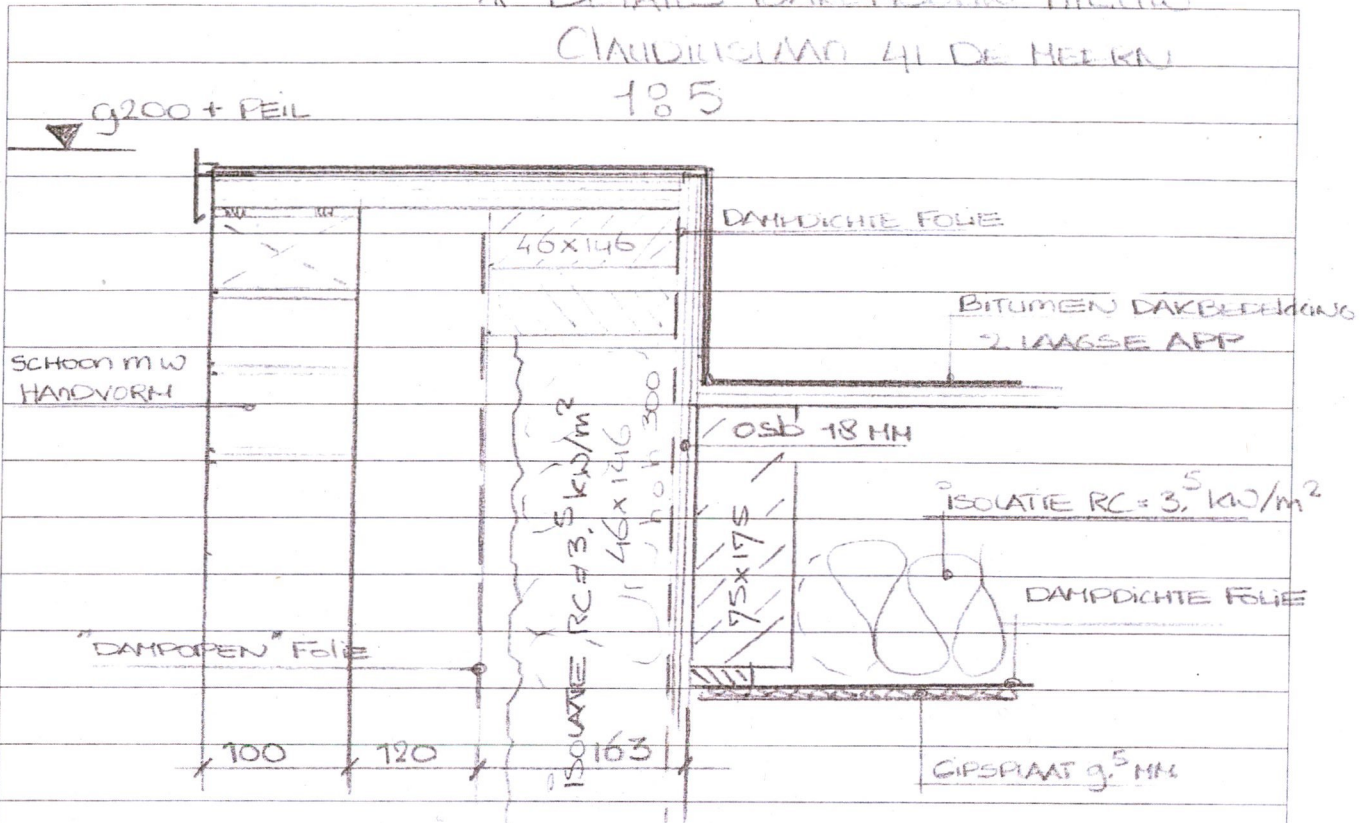 CLAUDIUSLAAN 41 DE MEERN
1:5
9200 + PEIL
DAMPDICHTE FOLIE
46x146
BITUMEN DAKBEDEKKING
2 LAAGSE APP
SCHOON MW
HANDVORM
OSB 18 MM
ISOLATIE RC = 3,5 KW/m²
46x146
hoh 300
75x175
ISOLATIE RC = 3,5 KW/m²
DAMPDICHTE FOLIE
"DAMPOPEN" FOLIE
100
120
163
GIPSPLAAT 9,5 MM